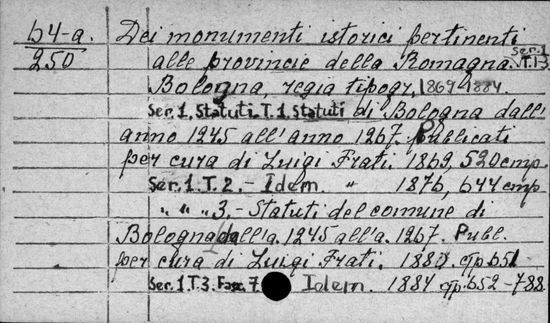 b4-a.
250
Dei monumenti istorici pertinenti
alle provincie della Romagna. Ser.1 T.1-3
Bologna, regia tipogr. 1869-1884
Ser.1, Statuti T.1, Statuti di Bologna dall'
anno 1245 all'anno 1267. Publicati
per cura di Luigi Frati. 1869, 520 стр.
Ser.1.T.2.- Idem. " 1876, 644 стр.
" " " 3.- Statuti del comune di
Bologna dall'a. 1245 all'a. 1267. Publ.
per cura di Luigi Frati. 188
Ser.1.T.3. Fasc.7. Idem. 1884 стр. 652-788.